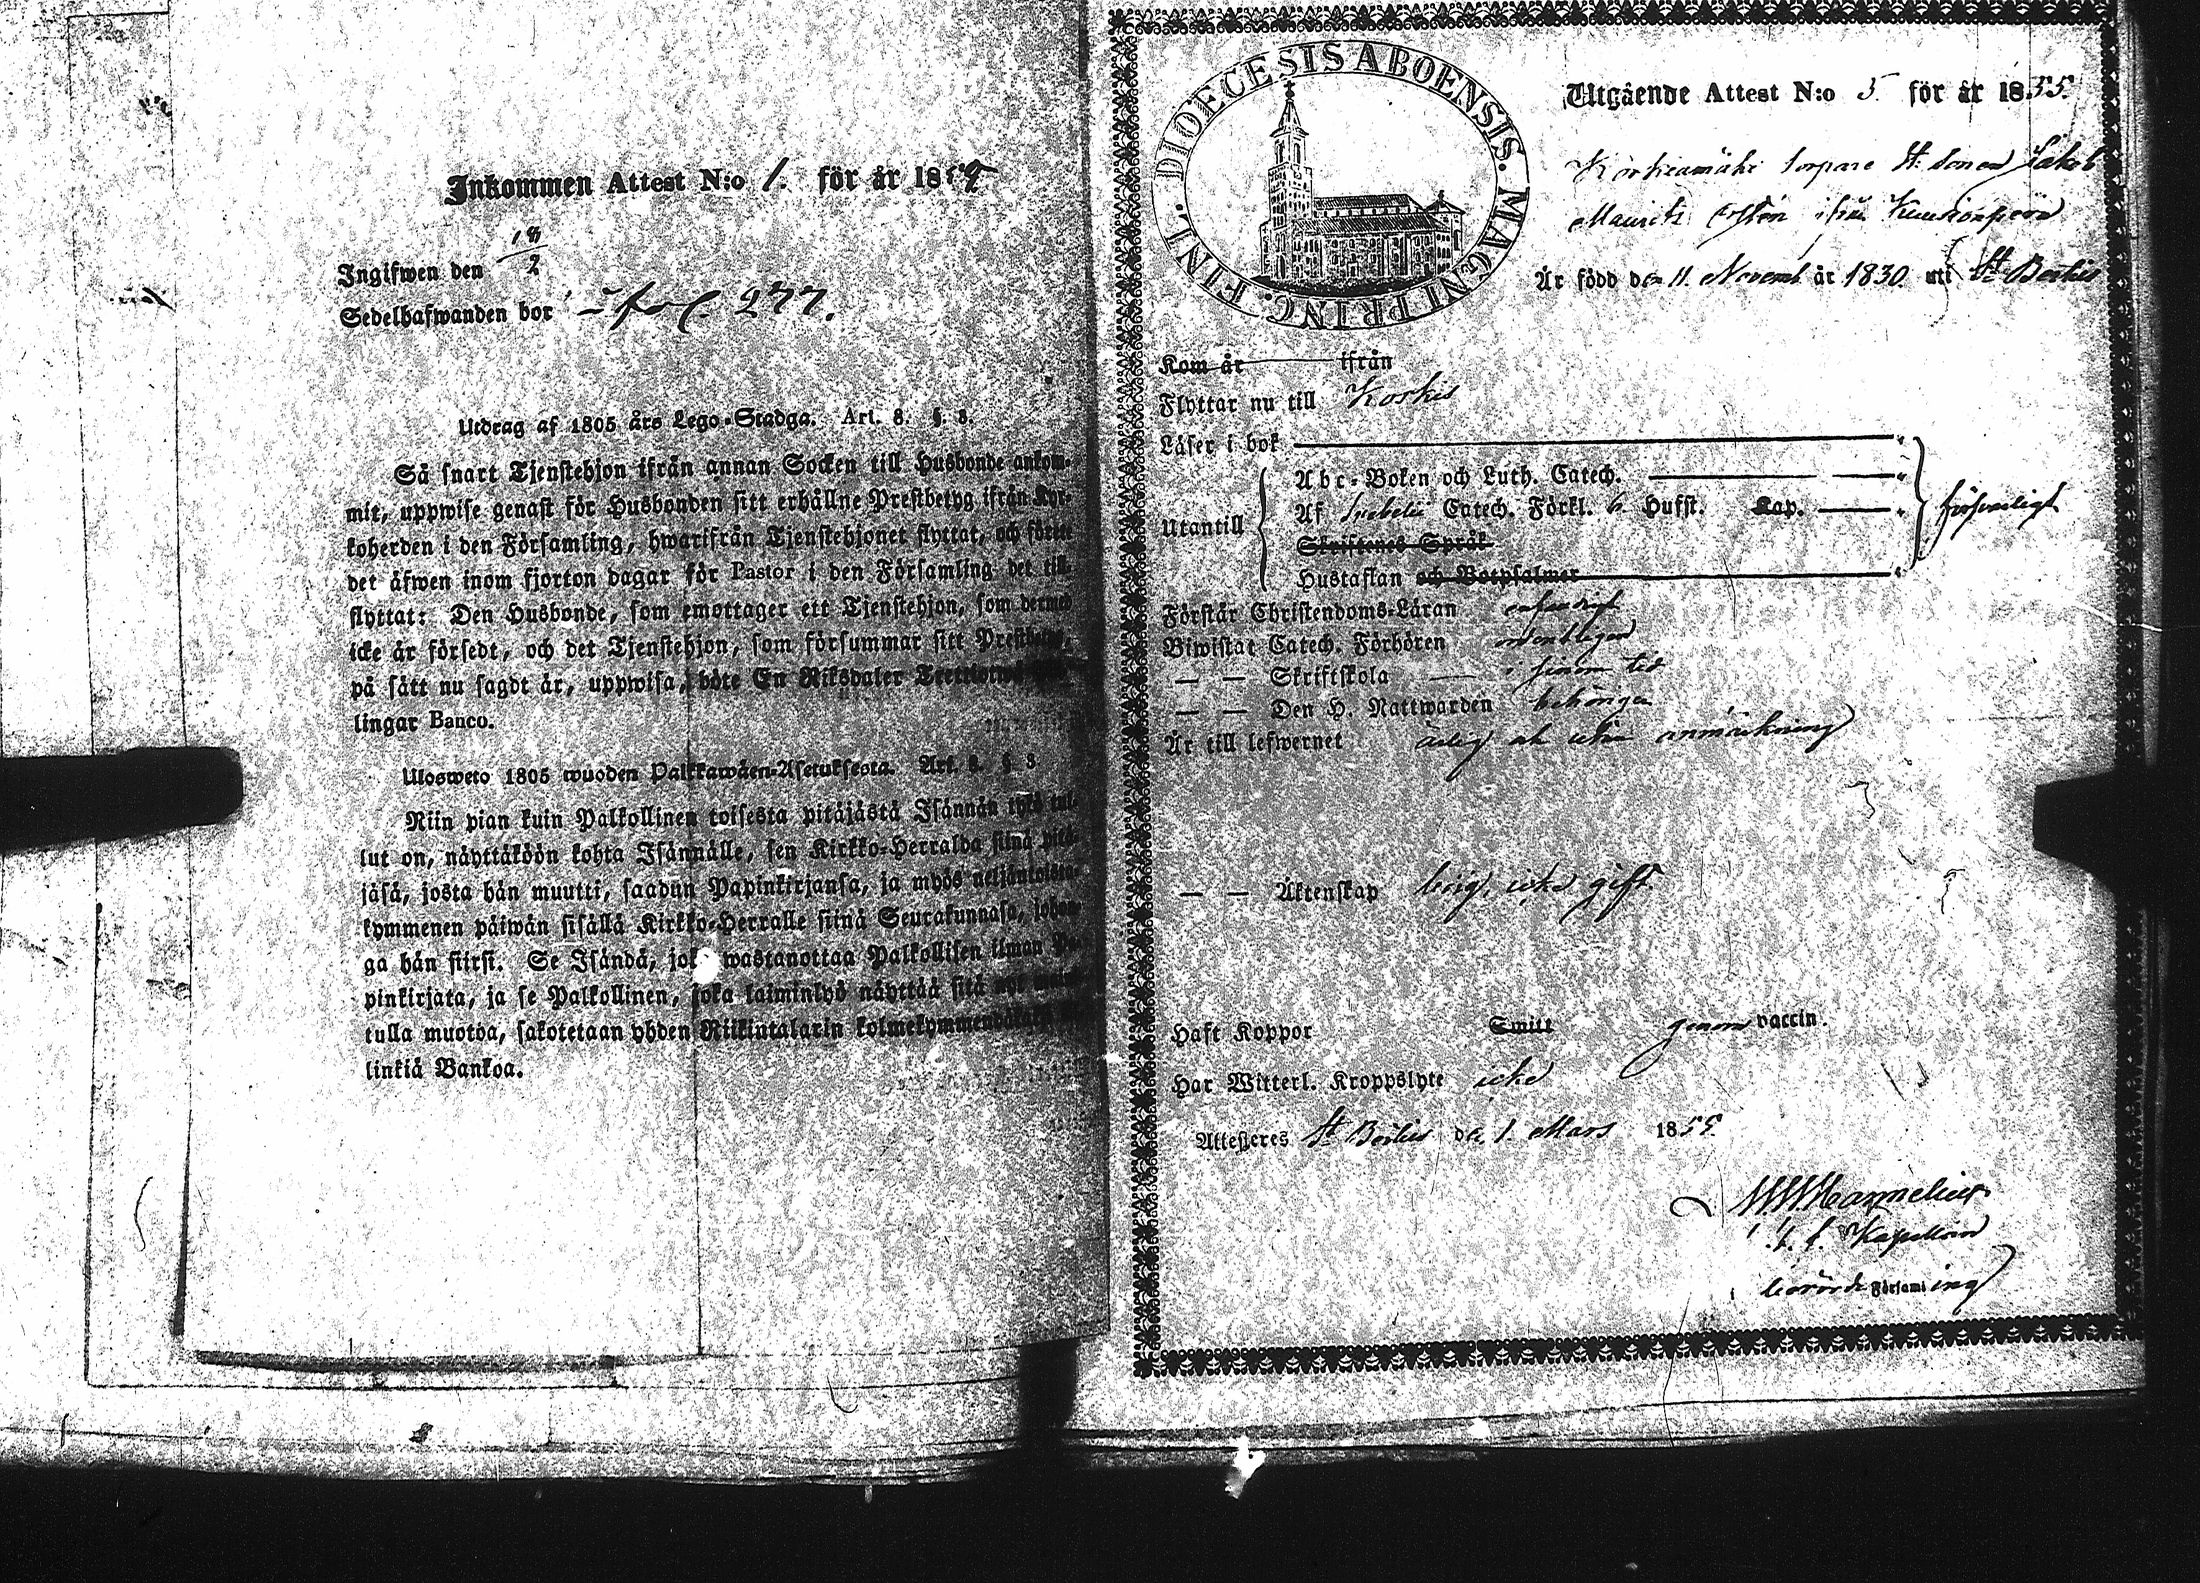 Inkommen Attest N:o 1. för år 1859
Ingifwen den 18/2
Sedelhafwanden bor fol. 277.
Utdrag af 1805 års Lego-Stadga. Art. 8. §. 3.
Så snart Tjenstehjon ifrån annan Socken till Husbonde ankom-
mit, uppwise genast för Husbonden sitt erhållne Prestbetyg ifrån Kyr-
koherden i den Församling, hwarifrån Tjenstehjonet flyttat, och förete
det äfwen inom fjorton dagar för Pastor i den Församling det till-
flyttat: Den Husbonde, som emottager ett Tjenstehjon, som dermed
icke är försedt, och det Tjenstehjon, som försummar sitt Prestbetyg,
på sätt nu sagdt är, uppwisa, böte En Riksdaler
lingar Banco.
Ulosweto 1805 wuoden Palkkawäen-Asetuksesta. Art. 8. § 3
Niin pian kuin Palkollinen toisesta pitäjästä Isännän tykö tul-
lut on, näyttäköön kohta Isännälle, sen Kirkko-Herralda siinä pitä-
jäsä, josta hän muutti, saadun Papinkirjansa, ja myös neljäntoista-
kymmenen päiwän sisällä Kirkko-Herralle siinä Seurakunnasa, johon-
ga hän siirsi. Se Isändä, joka wastanottaa Palkollisen ilman Pa-
pinkirjata, ja se Palkollinen, joka laiminlyö näyttää sitä nyt
tulla muotoa, sakotetaan yhden Riikintalarin
linkiä Bankoa.
FINL. DIOECESIS ABOENSIS. MAGNI PRINC.
Utgående Attest N:o 5. för år 1855.
torpare St. sonen Jakob
Maurits ifrån
Är född den 11. Novemb. år 1830 uti St Bertils
Kom år ifrån
Flyttar nu till Koskis
Läser i bok
Utantill
Abc-Boken och Luth. Catech.
Af Svebelii Catech. Förkl. 6 Hufst. Kap.
Skriftenes Språk
Hustaflan och Botpsalmer
försvarligt
Förstår Christendoms-Läran enfaldigt
Biwistat Catech. Förhören ordentligen
— — Skriftskola — i sinom tid
— — Den H. Nattwarden behörigen
Är till lefwernet ärlig och utan anmärkning
— — Äktenskap ledig, icke gift.
Haft Koppor Smitt genom vaccin.
Har Witterl. Kroppslyte icke
Attesteres St Bertils de 1. Mars 1855
Hannelius
t. f. Kapellan
berörde Församling